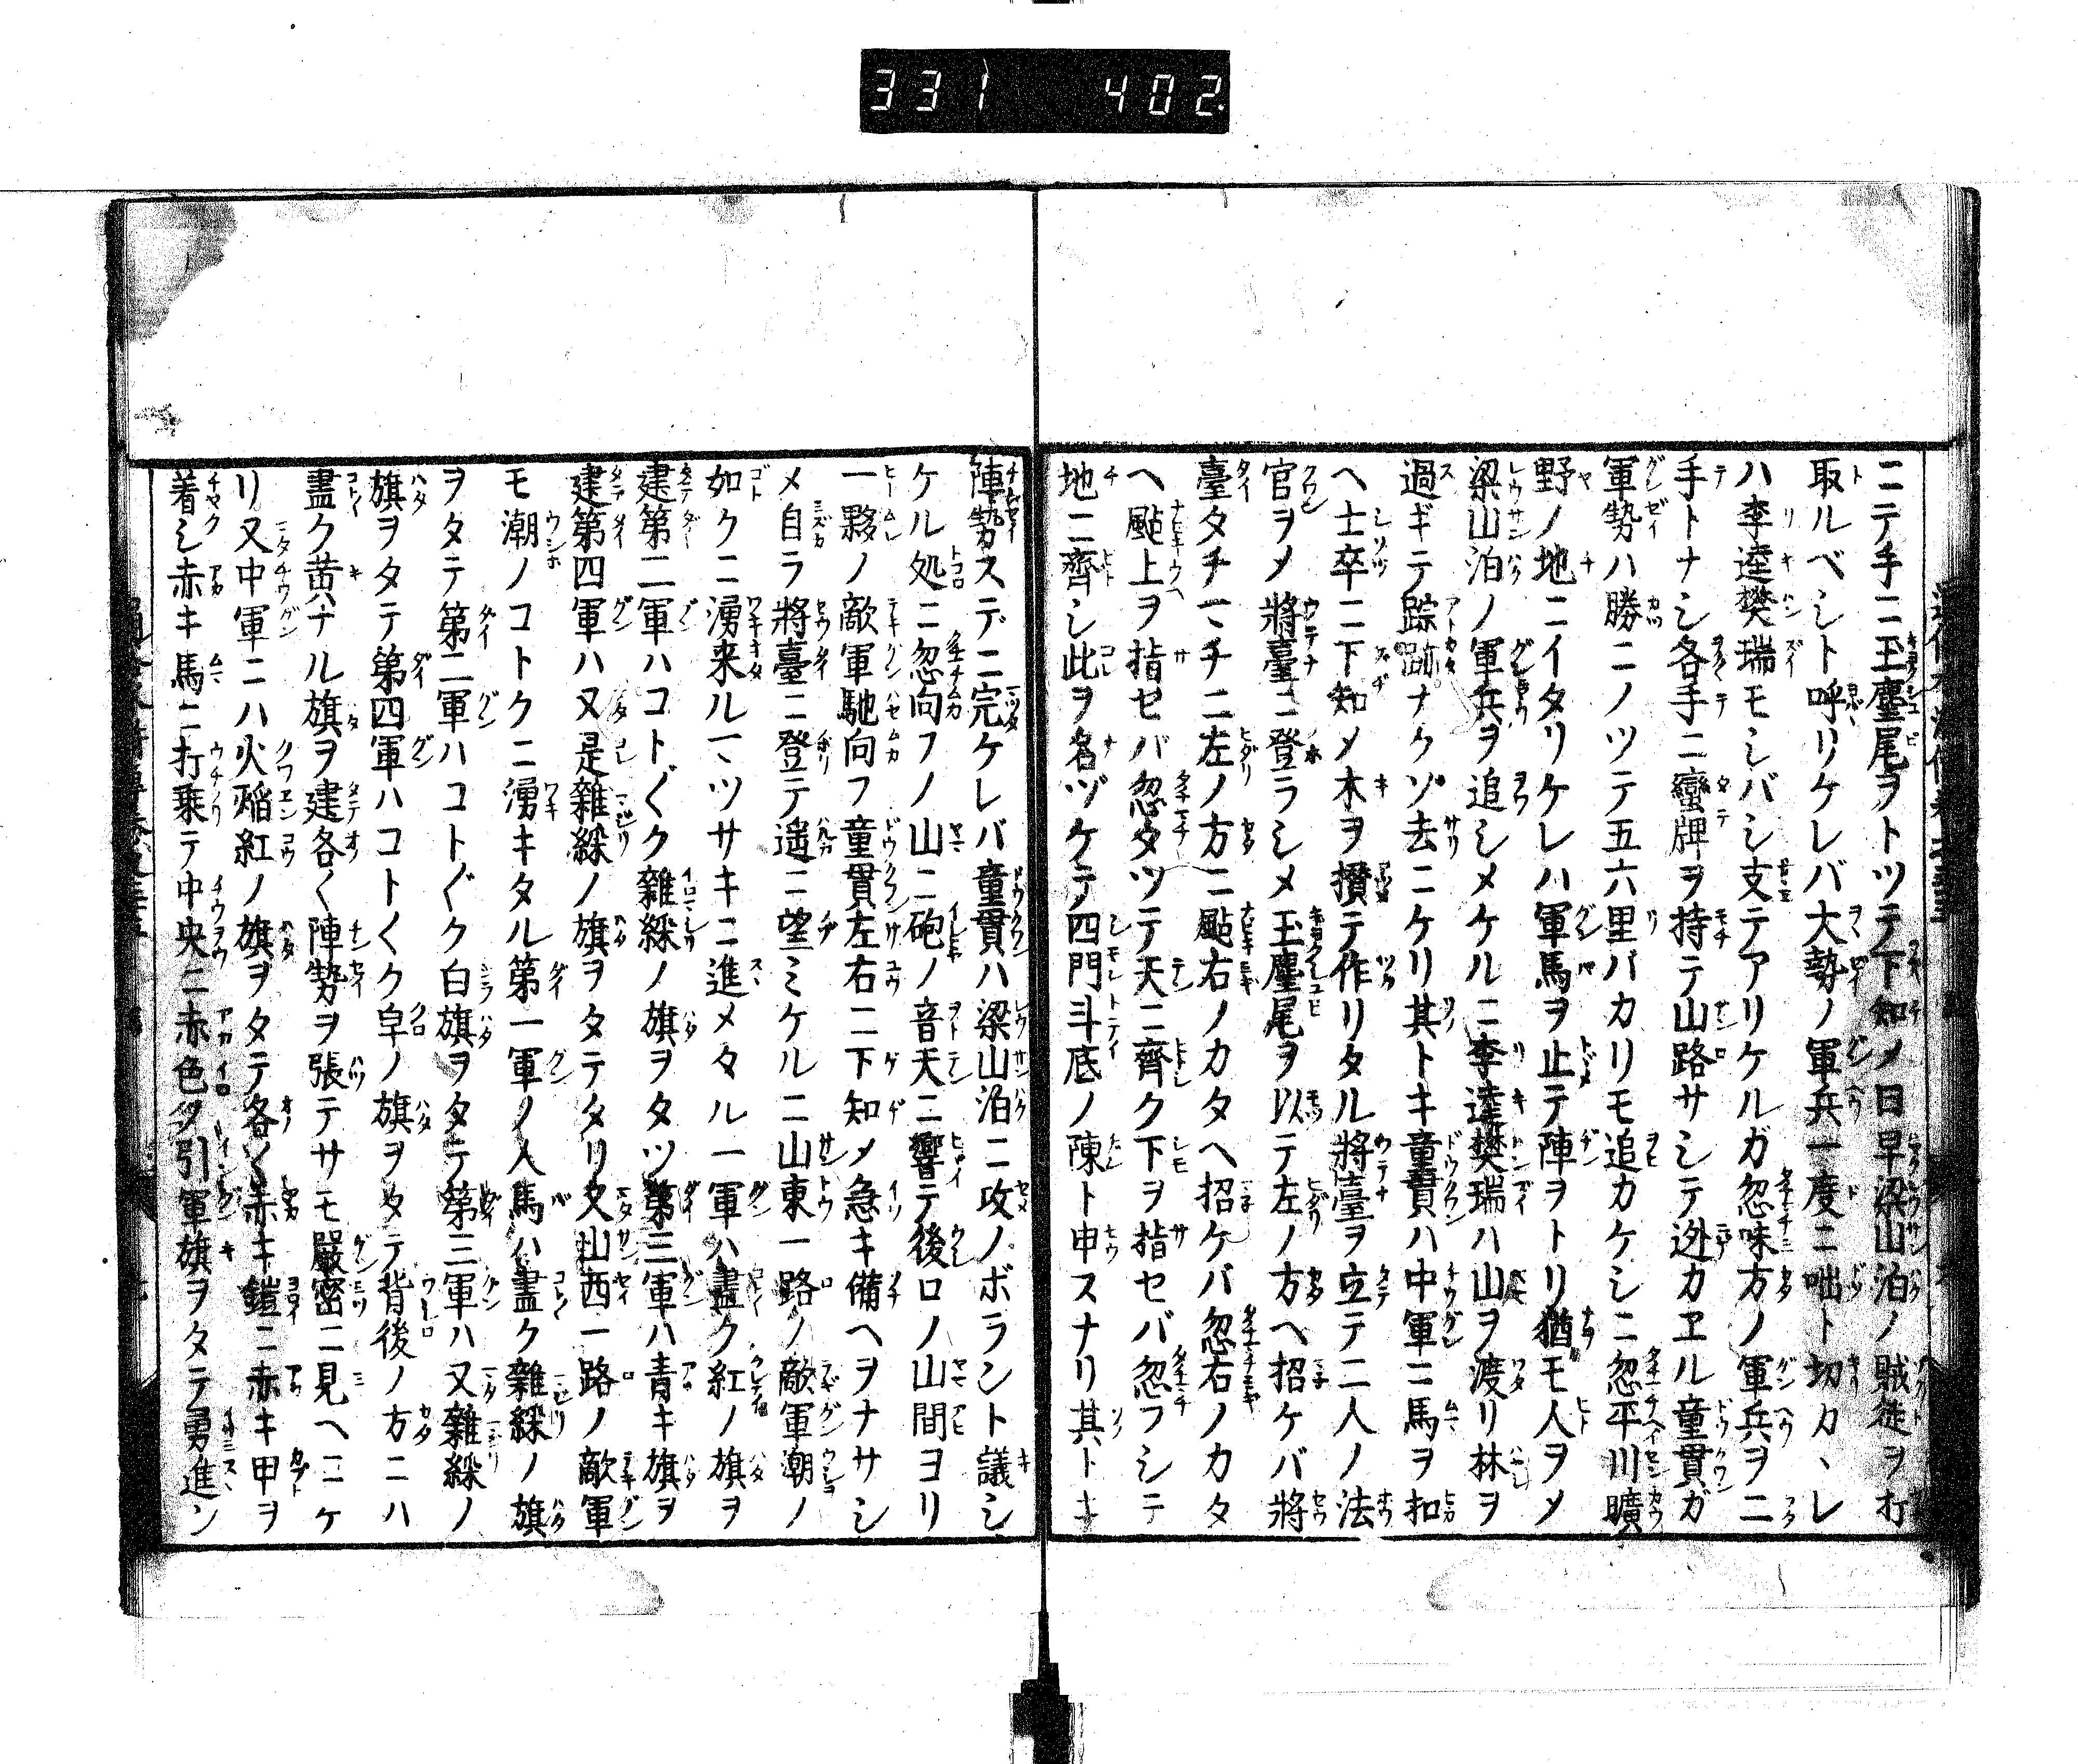 331 402.
ニテ手ニ玉麈尾ヲトツテ下知メ曰早梁山泊ノ賊徒ヲ打
取ルベシト呼リケレバ大勢ノ軍兵一度ニ咄ト切カヽレ
ハ李逵樊瑞モシバシ支テアリケルガ忽味方ノ軍兵ヲ二
手トナシ各手ニ蠻牌ヲ持テ山路サシテ迯カヱル童貫ガ
軍勢ハ勝ニノツテ五六里バカリモ追カケシニ忽平川曠
野ノ地ニイタリケレハ軍馬ヲ止テ陣ヲトリ猶モ人ヲメ
梁山泊ノ軍兵ヲ追シメケルニ李逵樊瑞ハ山ヲ渡リ林ヲ
過ギテ踪跡ナクゾ去ニケリ其トキ童貫ハ中軍ニ馬ヲ扣
ヘ士卒ニ下知メ木ヲ攅テ作リタル將臺ヲ立テ二人ノ法
官ヲメ將臺ニ登ラシメ玉麈尾ヲ以テ左ノ方ヘ招ケバ將
臺タチマチニ左ノ方ニ颭右ノカタヘ招ケバ忽右ノカタ
ヘ颭上ヲ指セバ忽タツテ天ニ齊ク下ヲ指セバ忽フシテ
地ニ齊シ此ヲ名ヅケテ四門斗底ノ陳ト申スナリ其トキ
陣勢スデニ完ケレバ童貫ハ梁山泊ニ攻ノボラント議シ
ケル処ニ忽向フノ山ニ砲ノ音天ニ響テ後ロノ山間ヨリ
一夥ノ敵軍馳向フ童貫左右ニ下知メ急キ備ヘヲナサシ
メ自ラ將臺ニ登テ遥ニ望ミケルニ山東一路ノ敵軍潮ノ
如クニ湧来ルマツサキニ進メタル一軍ハ盡ク紅ノ旗ヲ
建第二軍ハコト〴〵ク雜綵ノ旗ヲタツ第三軍ハ青キ旗ヲ
建第四軍ハ又是雜綵ノ旗ヲタテタリ又山西一路ノ敵軍
モ潮ノコトクニ湧キタル第一軍ノ人馬ハ盡ク雜綵ノ旗
ヲタテ第二軍ハコト〴〵ク白旗ヲタテ第三軍ハ又雜綵ノ
旗ヲタテ第四軍ハコト〳〵ク皁ノ旗ヲタテ背後ノ方ニハ
盡ク黄ナル旗ヲ建各〳〵陣勢ヲ張テサモ嚴密ニ見ヘニケ
リ又中軍ニハ火焔紅ノ旗ヲタテ各〳〵赤キ鎧ニ赤キ甲ヲ
着シ赤キ馬ニ打乗テ中央ニ赤色タ引軍旗ヲタテ勇進ン